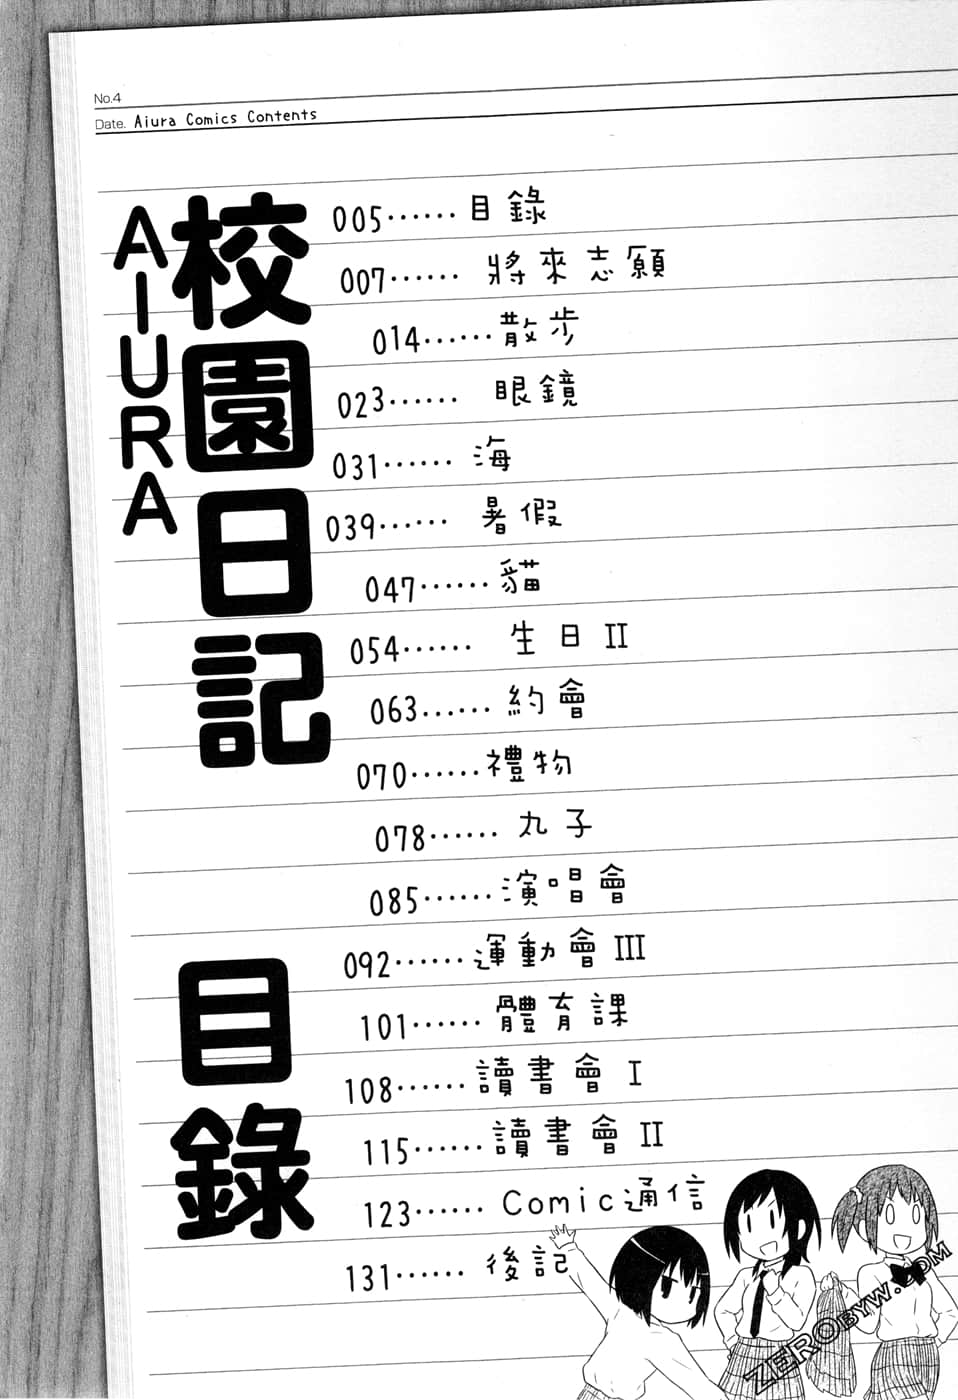 No.4
Date. Aiura Comics Contents
校園日記
AIURA
目錄
005……目錄
007……將來志願
014……散步
023……眼鏡
031……海
039……暑假
047……貓
054……生日II
063……約會
070……禮物
078……丸子
085……演唱會
092……運動會III
101……體育課
108……讀書會I
115……讀書會II
123……Comic通信
131……後記
ZEROBYW.COM